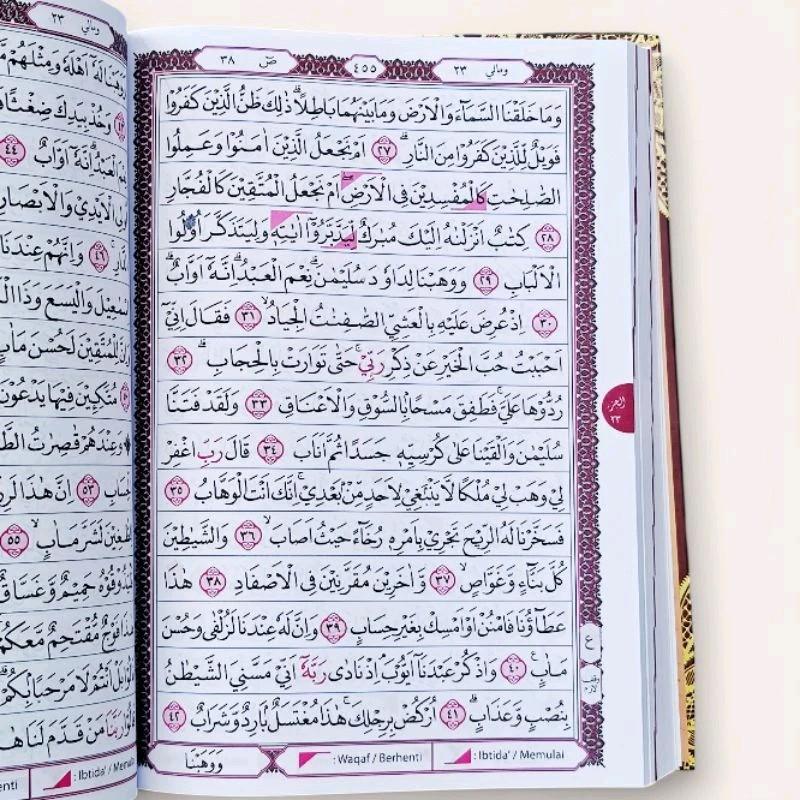 ومالي ٢٣
٤٥٥
صۤ ٣٨
وَمَا خَلَقْنَا السَّمَاۤءَ وَالْاَرْضَ وَمَا بَيْنَهُمَا بَاطِلًاۗ ذٰلِكَ ظَنُّ الَّذِيْنَ كَفَرُوْا
فَوَيْلٌ لِّلَّذِيْنَ كَفَرُوْا مِنَ النَّارِۗ ٢٧ اَمْ نَجْعَلُ الَّذِيْنَ اٰمَنُوْا وَعَمِلُوا
الصّٰلِحٰتِ كَالْمُفْسِدِيْنَ فِى الْاَرْضِۖ اَمْ نَجْعَلُ الْمُتَّقِيْنَ كَالْفُجَّارِ
٢٨ كِتٰبٌ اَنْزَلْنٰهُ اِلَيْكَ مُبٰرَكٌ لِّيَدَّبَّرُوْٓا اٰيٰتِهٖ وَلِيَتَذَكَّرَ اُولُوا
الْاَلْبَابِ ٢٩ وَوَهَبْنَا لِدَاوٗدَ سُلَيْمٰنَۗ نِعْمَ الْعَبْدُۗ اِنَّهٗٓ اَوَّابٌۗ
٣٠ اِذْ عُرِضَ عَلَيْهِ بِالْعَشِيِّ الصّٰفِنٰتُ الْجِيَادُۙ ٣١ فَقَالَ اِنِّيْٓ
اَحْبَبْتُ حُبَّ الْخَيْرِ عَنْ ذِكْرِ رَبِّيْۚ حَتّٰى تَوَارَتْ بِالْحِجَابِۗ ٣٢
رُدُّوْهَا عَلَيَّۚ فَطَفِقَ مَسْحًا بِالسُّوْقِ وَالْاَعْنَاقِ ٣٣ وَلَقَدْ فَتَنَّا
سُلَيْمٰنَ وَاَلْقَيْنَا عَلٰى كُرْسِيِّهٖ جَسَدًا ثُمَّ اَنَابَ ٣٤ قَالَ رَبِّ اغْفِرْ
لِيْ وَهَبْ لِيْ مُلْكًا لَّا يَنْۢبَغِيْ لِاَحَدٍ مِّنْۢ بَعْدِيْۚ اِنَّكَ اَنْتَ الْوَهَّابُ ٣٥
فَسَخَّرْنَا لَهُ الرِّيْحَ تَجْرِيْ بِاَمْرِهٖ رُخَاۤءً حَيْثُ اَصَابَۙ ٣٦ وَالشَّيٰطِيْنَ
كُلَّ بَنَّاۤءٍ وَّغَوَّاصٍۙ ٣٧ وَّاٰخَرِيْنَ مُقَرَّنِيْنَ فِى الْاَصْفَادِ ٣٨ هٰذَا
عَطَاۤؤُنَا فَامْنُنْ اَوْ اَمْسِكْ بِغَيْرِ حِسَابٍ ٣٩ وَاِنَّ لَهٗ عِنْدَنَا لَزُلْفٰى وَحُسْنَ
مَاٰبٍۚ ٤٠ وَاذْكُرْ عَبْدَنَآ اَيُّوْبَۘ اِذْ نَادٰى رَبَّهٗٓ اَنِّيْ مَسَّنِيَ الشَّيْطٰنُ
بِنُصْبٍ وَّعَذَابٍۗ ٤١ اُرْكُضْ بِرِجْلِكَۚ هٰذَا مُغْتَسَلٌۢ بَارِدٌ وَّشَرَابٌ ٤٢
وَوَهَبْنَا
: Waqaf / Berhenti
: Ibtida' / Memulai
الجزء
٢٣
ع
وقف لازم
ومالي ٢٣
وَوَهَبْنَا لَهٗٓ اَهْلَهٗ وَمِثْلَهُمْ
وَخُذْ بِيَدِكَ ضِغْثًا
الْعَبْدُۗ اِنَّهٗٓ اَوَّابٌ ٤٤
الْاَيْدِيْ وَالْاَبْصَارِ
٤٦ وَاِنَّهُمْ عِنْدَنَا
وَالْيَسَعَ وَذَا
لِلْمُتَّقِيْنَ لَحُسْنَ مَاٰبٍ
مُتَّكِـِٕيْنَ فِيْهَا يَدْعُوْنَ
وَعِنْدَهُمْ قٰصِرٰتُ
٥٣ اِنَّ هٰذَا
لَشَرَّ مَاٰبٍۙ ٥٥
حَمِيْمٌ وَّغَسَّاقٌ
فَوْجٌ مُّقْتَحِمٌ مَّعَكُمْ
اَنْتُمْ لَا مَرْحَبًاۢ بِكُمْ
رَبَّنَا مَنْ قَدَّمَ لَنَا
: Ibtida' / Memulai